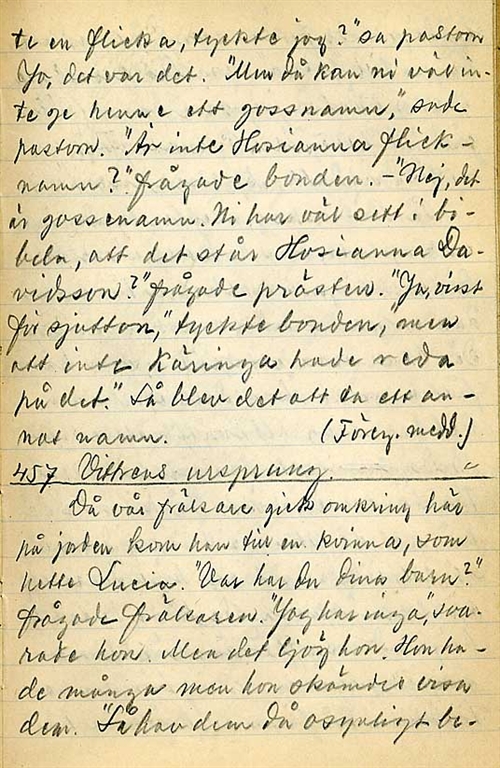 te en flicka, tyckte jag?" sa pastorn
Jo, det var det. "Men då kan ni väl in-
te ge henne ett gossnamn," sade
pastorn. "Är inte Hosianna flick-
namn?" frågade bonden. - "Nej, det
är gossenamn. Ni har väl sett i bi-
beln, att det står Hosianna Da-
vidsson?" frågade prästen. "Ja, visst
för sjutton," tyckte bonden, "men
att inte käringa hade reda
på det." Så blev det att ta ett an-
nat namn. (Föreg. medd.)
457 Vittrens ursprung. "
Då vår frälsare gick omkring här
på jorden kom han till en kvinna, som
hette Lucia. "Var har du dina barn?"
frågade frälsaren. "Jag har inga", sva-
rade hon. Men det ljög hon. Hon ha-
de många men hon skämdes visa
dem. "Så hav dem då osynligt be-